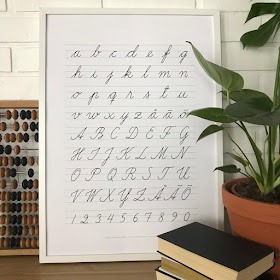 a b c d e f g
h i j k l m n
o p q r s t u
v w x y z å ä ö
A B C D E F G
H I J K L M N
O P Q R S T U
V W X Y Z Å Ä Ö
1 2 3 4 5 6 7 8 9 0